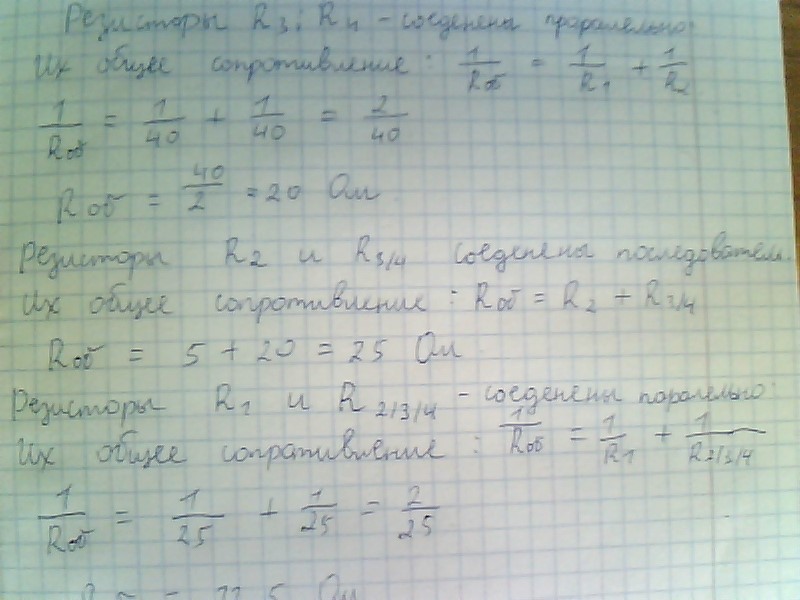 Резисторы R3 и R4 - соеденены праралельно.
Их общее сопротивление: 1/Rоб = 1/R1 + 1/R2
1/Rоб = 1/40 + 1/40 = 2/40
Rоб = 40/2 = 20 Ом.
Резисторы R2 и R3/4 соеденены последовательн.
Их общее сопротивление: Rоб = R2 + R3/4
Rоб = 5 + 20 = 25 Ом.
Резисторы R1 и R2/3/4 - соеденены паралельно:
Их общее сопротивление: 1/Rоб = 1/R1 + 1/R2/3/4
1/Rоб = 1/25 + 1/25 = 2/25